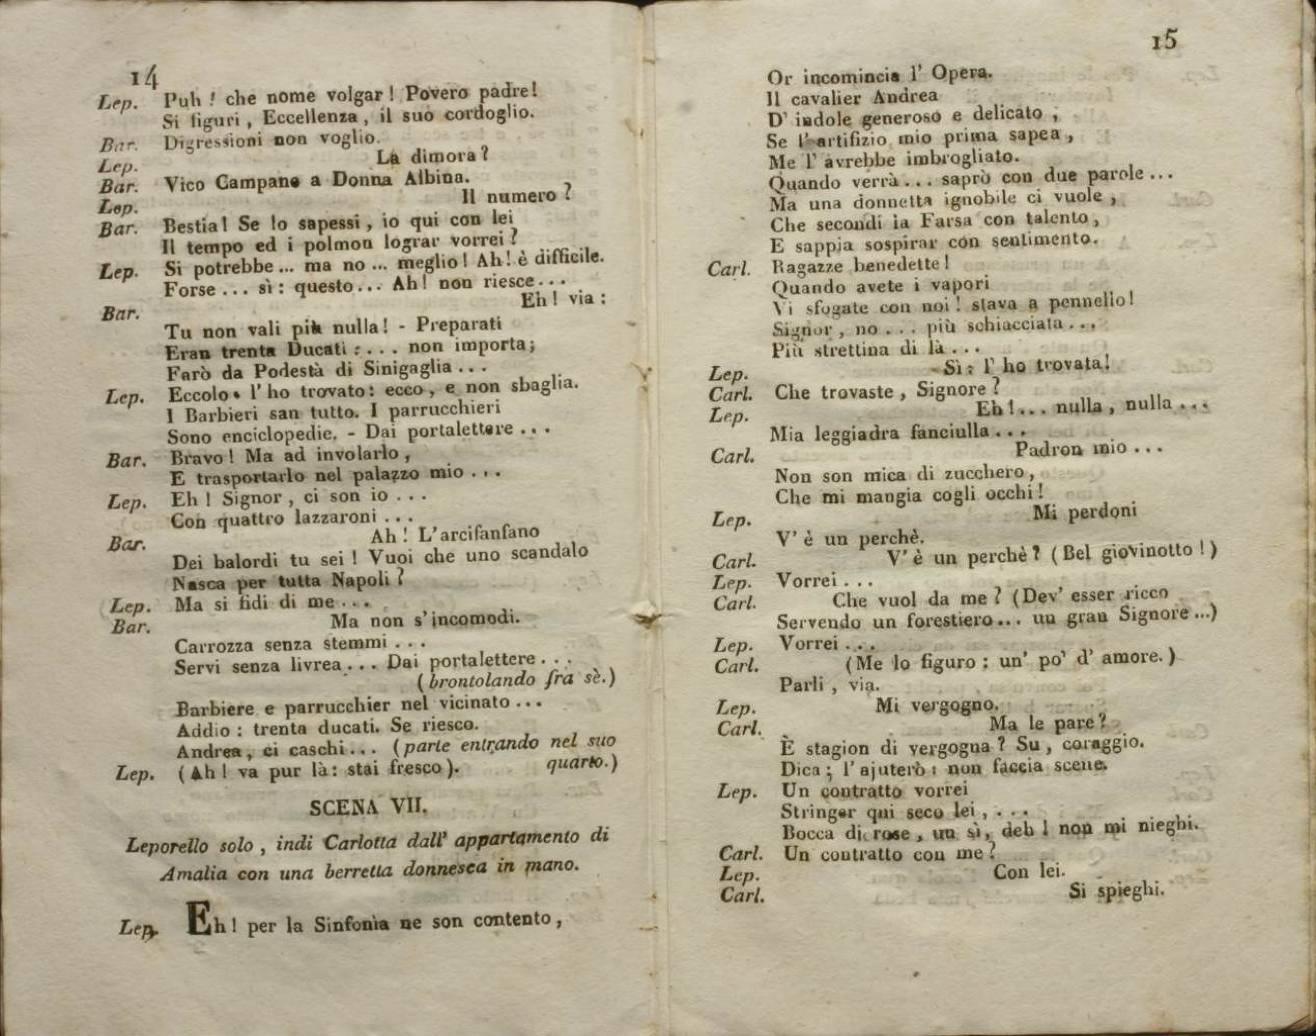 14
Lep. Puh! che nome volgar! Povero padre!
Si figuri, Eccellenza, il suo cordoglio.
Bar. Digressioni non voglio.
Lep. La dimora?
Bar. Vico Campane a Donna Albina.
Lep. Il numero?
Bar. Bestia! Se lo sapessi, io qui con lei
Il tempo ed i polmon lograr vorrei?
Lep. Si potrebbe... ma no... meglio! Ah! è difficile.
Forse... sì: questo... Ah! non riesce...
Bar. Eh! via:
Tu non vali più nulla! - Preparati
Eran trenta Ducati:... non importa;
Farò da Podestà di Sinigaglia...
Lep. Eccolo. l'ho trovato: ecco, e non sbaglia.
I Barbieri san tutto. I parrucchieri
Sono enciclopedie. - Dai portalettere...
Bar. Bravo! Ma ad involarlo,
E trasportarlo nel palazzo mio...
Lep. Eh! Signor, ci son io...
Con quattro lazzaroni...
Bar. Ah! L'arcifanfano
Dei balordi tu sei! Vuoi che uno scandalo
Nasca per tutta Napoli?
Lep. Ma si fidi di me...
Bar. Ma non s'incomodi.
Carrozza senza stemmi...
Servi senza livrea... Dai portalettere...
(brontolando fra sè.)
Barbiere e parrucchier nel vicinato...
Addio: trenta ducati. Se riesco.
Andrea, ci caschi... (parte entrando nel suo
Lep. (Ah! va pur là: stai fresco). quarto.)
SCENA VII.
Leporello solo, indi Carlotta dall' appartamento di
Amalia con una berretta donnesca in mano.
Lep. Eh! per la Sinfonìa ne son contento,
15
Or incomincia l' Opera.
Il cavalier Andrea
D' indole generoso e delicato,
Se l' artifizio mio prima sapea,
Me l' avrebbe imbrogliato.
Quando verrà... saprò con due parole...
Ma una donnetta ignobile ci vuole,
Che secondi la Farsa con talento,
E sappia sospirar con sentimento.
Carl. Ragazze benedette!
Quando avete i vapori
Vi sfogate con noi! stava a pennello!
Signor, no... più schiacciata...
Più strettina di là...
Lep. Sì: l' ho trovata!
Carl. Che trovaste, Signore?
Lep. Eh!... nulla, nulla...
Mia leggiadra fanciulla...
Carl. Padron mio...
Non son mica di zucchero,
Che mi mangia cogli occhi!
Lep. Mi perdoni
V' è un perchè.
Carl. V' è un perchè? (Bel giovinotto!)
Lep. Vorrei...
Carl. Che vuol da me? (Dev' esser ricco
Servendo un forestiero... un gran Signore...)
Lep. Vorrei...
Carl. (Me lo figuro: un' po' d' amore.)
Parli, via.
Lep. Mi vergogno.
Carl. Ma le pare?
È stagion di vergogna? Su, coraggio.
Dica; l' ajuterò: non faccia scene.
Lep. Un contratto vorrei
Stringer qui seco lei,...
Bocca di rose, un sì, deh! non mi nieghi.
Carl. Un contratto con me?
Lep. Con lei.
Carl. Si spieghi.